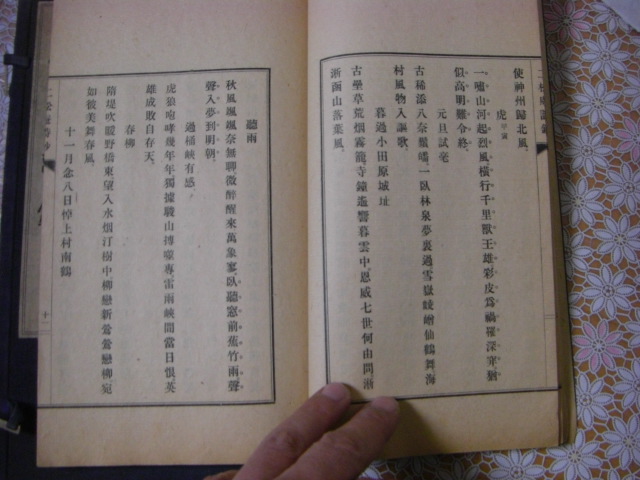 使神州歸北風。
虎
一嘯山河起烈風橫行千里獸王雄彩皮爲禍羅深穽猶
似高明難令終。
元旦試毫
古稀添八奈
一臥林泉夢裏過雪嶽
仙鶴舞海
村風物入謳歌。
暮過小田原城址
古壘草荒烟霧籠寺鐘遙響暮雲中恩威七世何由問漸
函山落葉風。
聽雨
秋風颯颯奈無聊微醉醒來萬象寥臥聽窓前蕉竹雨聲
聲入夢到明朝。
過桶峽有感
虎狼咆哮幾年年獨據駿山搏噬專雷雨峽間當日恨英
雄成敗自存天。
春柳
隋堤吹暖野橋東望入水烟汀樹中柳戀新鶯鶯戀柳宛
如彼美舞春風。
十一月念八日悼上村南鶴
十一